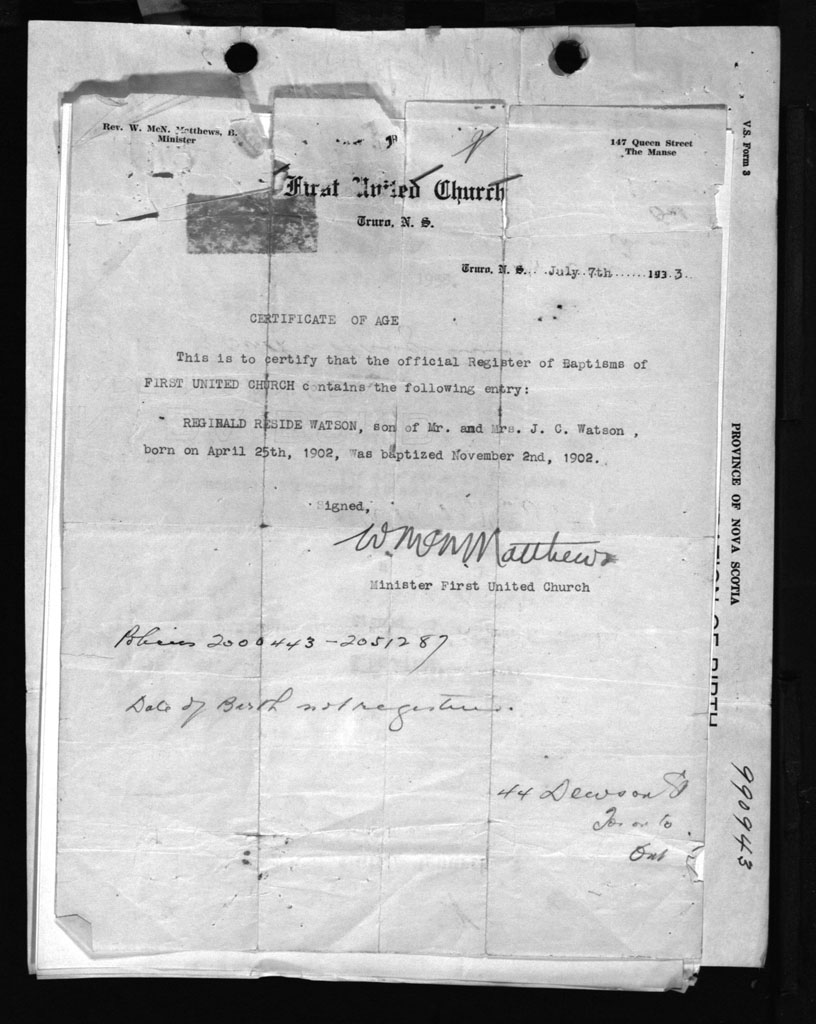 Rev. W. McN. Matthews, B.
Minister
147 Queen Street
The Manse
First United Church
Truro, N. S.
Truro, N. S. July 7th 1933
CERTIFICATE OF AGE
This is to certify that the official Register of Baptisms of
FIRST UNITED CHURCH contains the following entry:
REGIBALD RESIDE WATSON, son of Mr. and Mrs. J. C. Watson ,
born on April 25th, 1902, was baptized November 2nd, 1902.
Signed,
W. McN. Matthews
Minister First United Church
2000443-2051287
Date of Birth not registered.
44 Dewson St
Toronto
Ont
V.S. Form 3
PROVINCE OF NOVA SCOTIA
OF BIRTH
990943